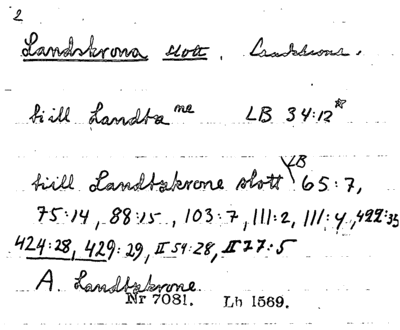 2
Landskrona slott. Landskrona.
till Landtz ne LB 34:12
LB
till Landtzkrone slott 65:7,
75:14, 88:15, 103:7, 111:2, 111:4, 422:35
424:28, 429:29, II 54:28, II 77:5
A. Landtzkrone.
Nr 7081. Lh 1569.